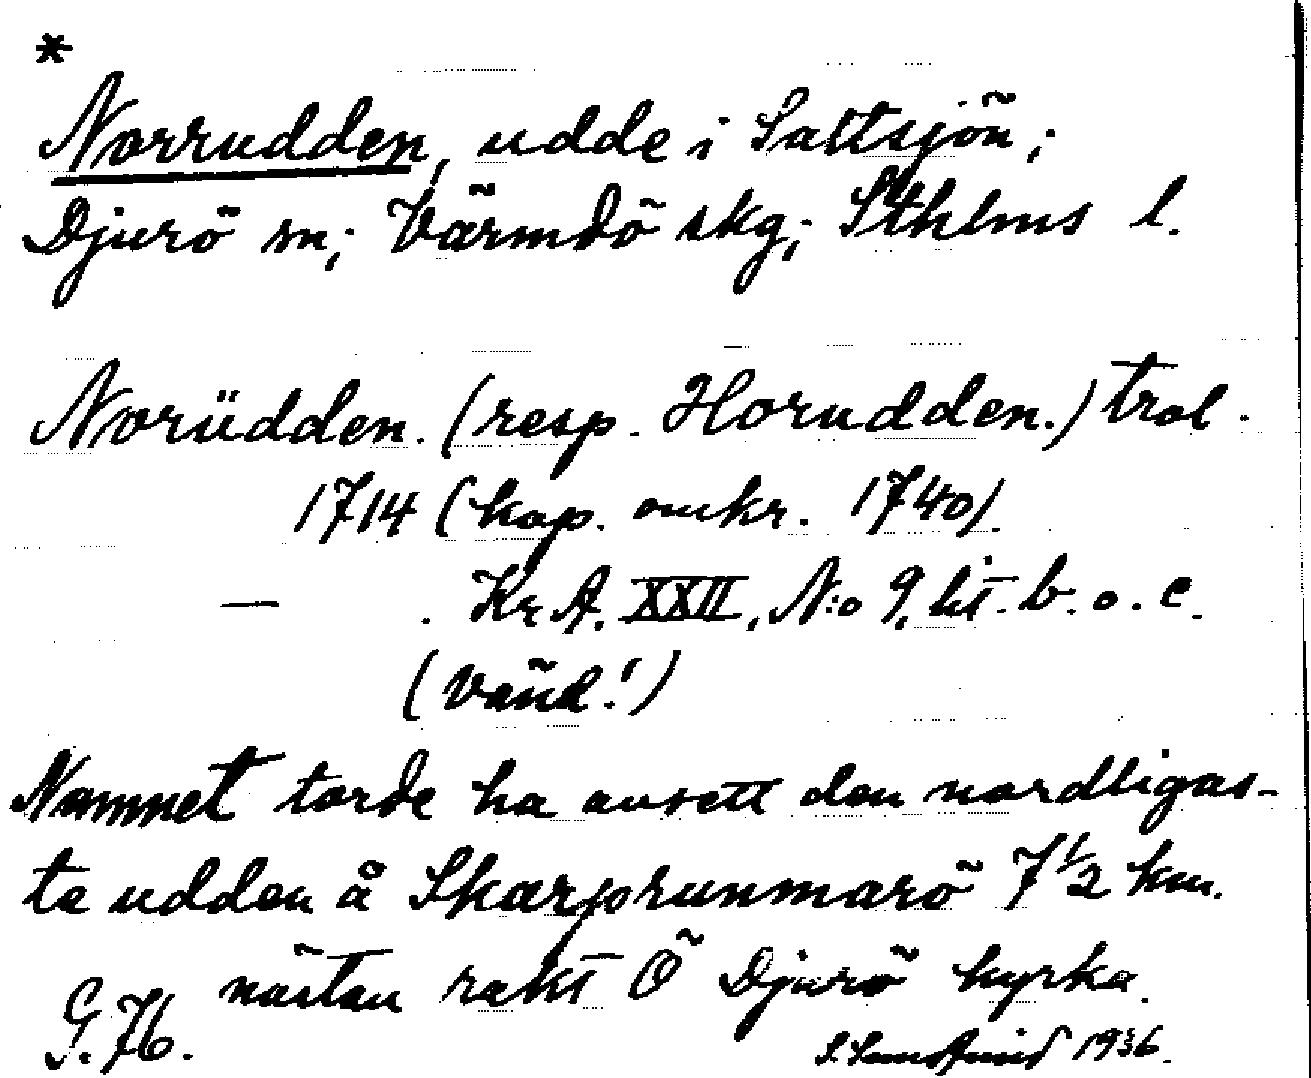 *
Norrudden, udde i Saltsjön;
Djurö sn; Värmdö skg; Sthlms l.
Norüdden. (resp. Horudden.) trol.
1714 (kop. omkr. 1740).
— . Kr. A. XXII, N:o 9, lit. b. o. c.
(Vänd!)
Namnet torde ha avsett den nordligas-
te udden å Skarprunmarö 7 1/2 km.
nästan rakt Ö Djurö kyrka.
G. Hb.
1936.